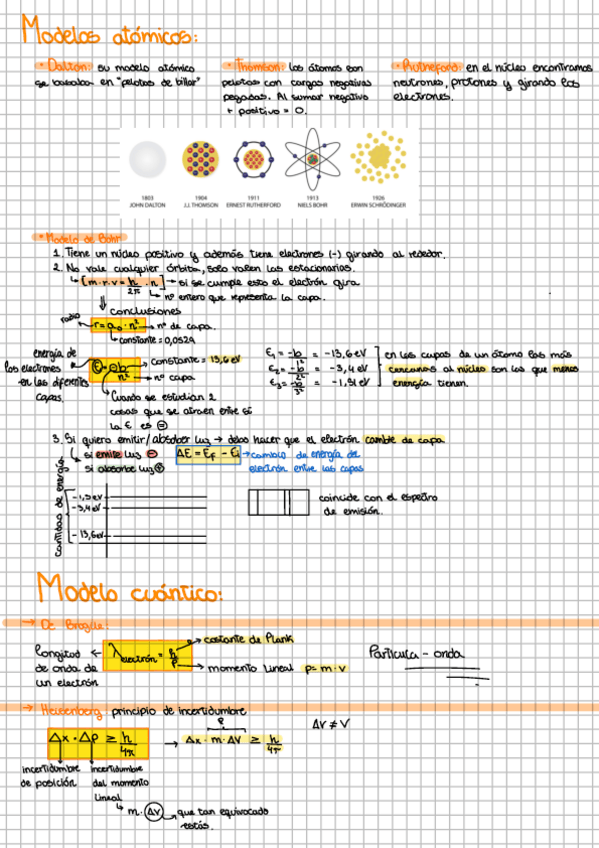 Modelos atómicos:
• Dalton: su modelo atómico
se basaba en "pelotas de billar"
• Thomson: los átomos son
pelotas con cargas negativas
pegadas. Al sumar negativo
+ positivo = 0.
• Rutherford: en el núcleo encontramos
neutrones, protones y girando los
electrones.
1803
JOHN DALTON
1904
J.J. THOMSON
1911
ERNEST RUTHERFORD
1913
NIELS BOHR
1926
ERWIN SCHRÖDINGER
• Modelo de Bohr
1. Tiene un núcleo positivo y además tiene electrones (-) girando al rededor.
2. No vale cualquier órbita, solo valen las estacionarias.
[m·r·v = h/2π · n] → si se cumple esto el electrón gira
nº entero que representa la capa.
conclusiones
radio
r = a₀ · n² → nº de capa.
constante = 0,0529
energía de
los electrones
en las diferentes
capas.
constante = 13,6 eV
nº capa
Cuando se estudian 2
cosas que se atraen entre sí
la E es ⊖
E₁ = -b/1² = -13,6 eV
E₂ = -b/2² = -3,4 eV
E₃ = -b/3² = -1,51 eV
en las capas de un átomo las más
cercanas al núcleo son las que menos
energía tienen.
3. Si quiero emitir/absorber luz → debo hacer que el electrón cambie de capa.
si emite luz ⊖
si absorbe luz ⊕
ΔE = Ef - Ei → cambio de energía del
electrón entre las capas
cantidas de energía
-1,5 eV
-3,4 eV
-13,6 eV
coincide con el espectro
de emisión.
Modelo cuántico:
→ De Broglie:
longitud
de onda de
un electrón
λelectrón = h/p
costante de Plank
momento lineal p = m·v
Partícula - onda
→ Heisenberg: principio de incertidumbre
Δx · Δp ≥ h/4π
→ Δx · m · Δv ≥ h/4π
p
Δv ≠ v
incertidumbre
de posición
incertidumbre
del momento
lineal
m · Δv → que tan equivocado
estás.